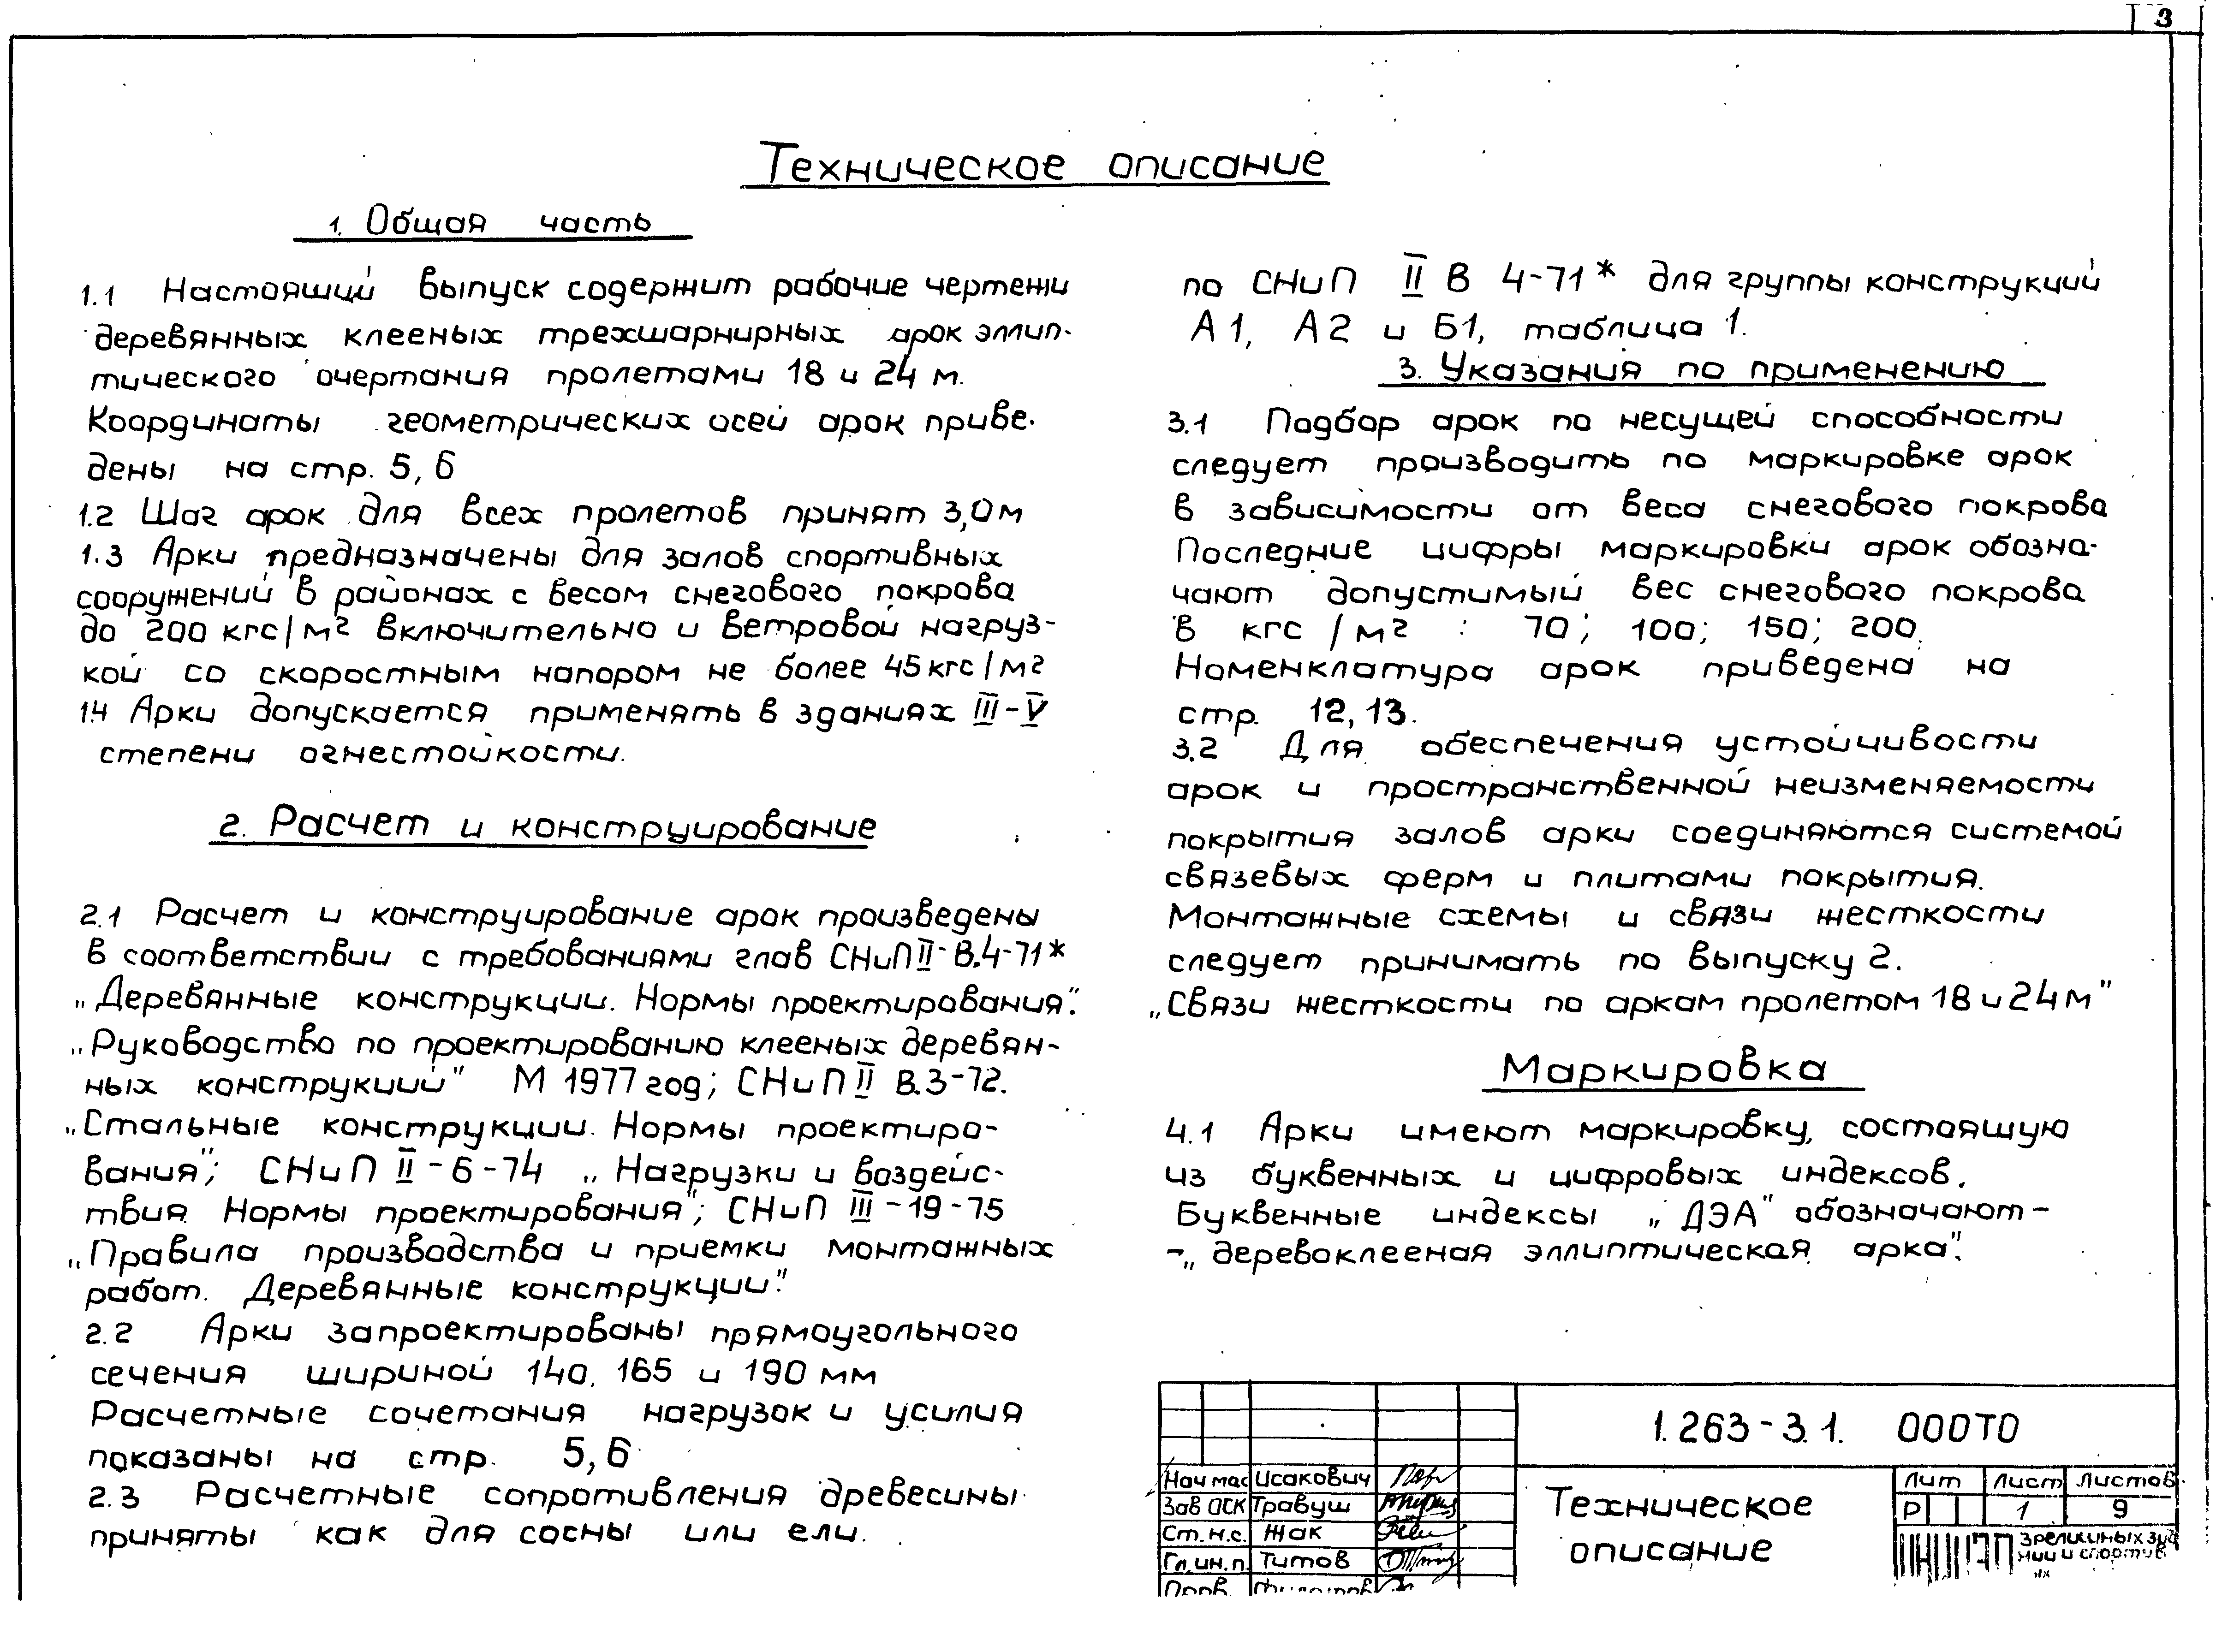 3
Техническое описание
1. Общая часть
1.1 Настоящий выпуск содержит рабочие чертежи
деревянных клееных трехшарнирных арок эллип-
тического очертания пролетами 18 и 24 м.
Координаты геометрических осей арок приве-
дены на стр. 5, 6
1.2 Шаг арок для всех пролетов принят 3,0м
1.3 Арки предназначены для залов спортивных
сооружений в районах с весом снегового покрова
до 200 кгс/м2 включительно и ветровой нагруз-
кой со скоростным напором не более 45кгс/м2
1.4 Арки допускается применять в зданиях III-V
степени огнестойкости.
2. Расчет и конструирование
2.1 Расчет и конструирование арок произведены
в соответствии с требованиями глав СНиП II-В.4-71*
„Деревянные конструкции. Нормы проектирования".
„Руководство по проектированию клееных деревян-
ных конструкций" М 1977 год; СНиП II В.3-72.
„Стальные конструкции. Нормы проектиро-
вания"; СНиП II-6-74 „Нагрузки и воздейс-
твия. Нормы проектирования"; СНиП III-19-75
„Правила производства и приемки монтажных
работ. Деревянные конструкции".
2.2 Арки запроектированы прямоугольного
сечения шириной 140, 165 и 190 мм
Расчетные сочетания нагрузок и усилия
показаны на стр. 5, 6
2.3 Расчетные сопротивления древесины
приняты как для сосны или ели.
по СНиП II В 4-71* для группы конструкций
А1, А2 и Б1, таблица 1.
3. Указания по применению
3.1 Подбор арок по несущей способности
следует производить по маркировке арок
в зависимости от веса снегового покрова
Последние цифры маркировки арок обозна-
чают допустимый вес снегового покрова
в кгс/м2 : 70; 100; 150; 200.
Номенклатура арок приведена на
стр. 12, 13.
3.2 Для обеспечения устойчивости
арок и пространственной неизменяемости
покрытия залов арки соединяются системой
связевых ферм и плитами покрытия.
Монтажные схемы и связи жесткости
следует принимать по выпуску 2.
„Связи жесткости по аркам пролетом 18 и 24м"
Маркировка
4.1 Арки имеют маркировку, состоящую
из буквенных и цифровых индексов.
Буквенные индексы „ДЭА" обозначают-
-„деревоклееная эллиптическая арка".
1.263-3.1. 000ТО
Техническое
описание
Лит Лист Листов
Р 1 9
зрелищных
Нач мас Исакович
Зав ОСК Травуш
Ст.н.с. Жак
Гл.ин.п. Титов